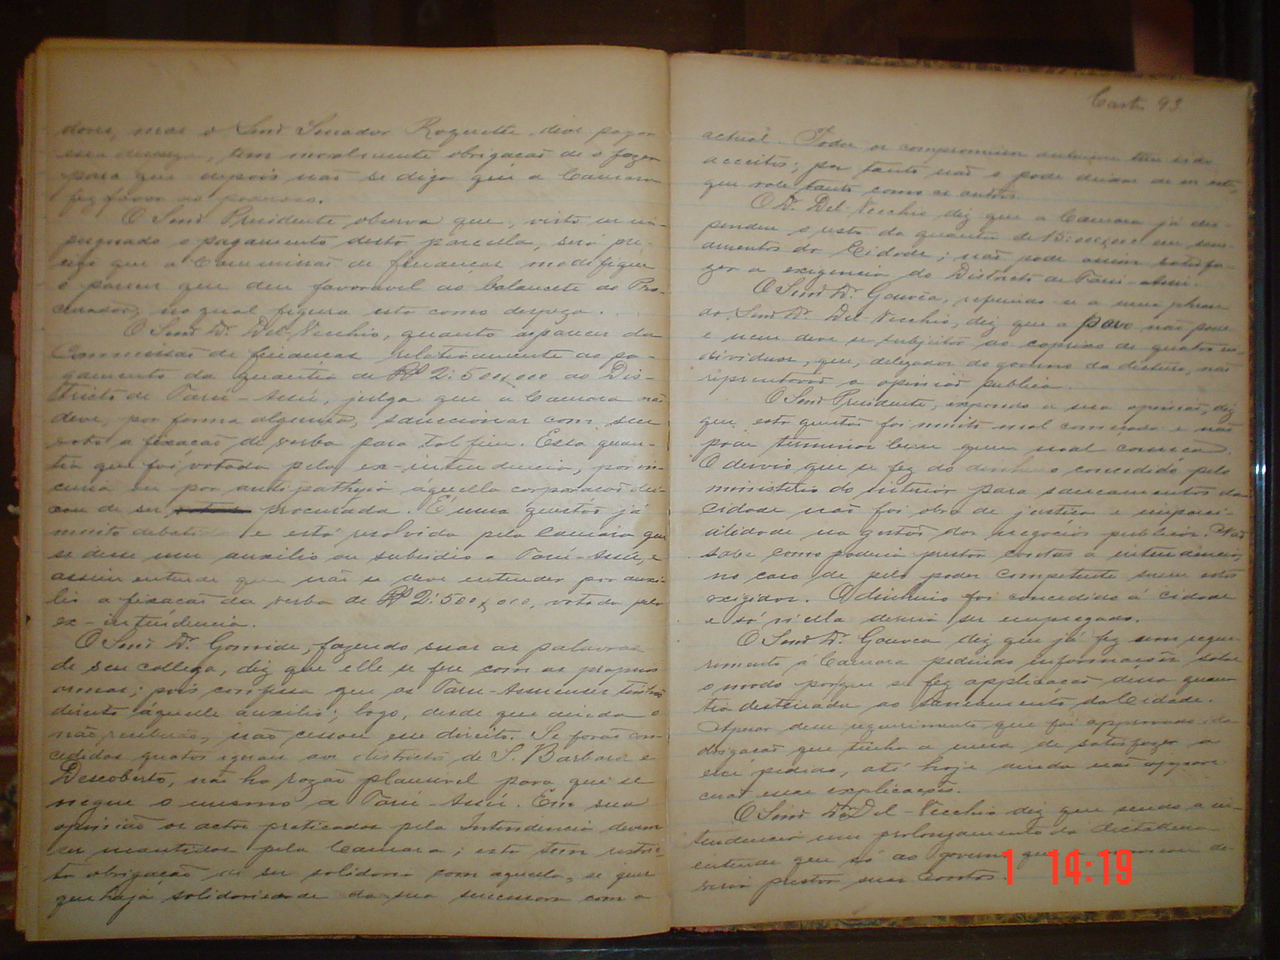 dores, mas o Senr Senador Roquette deve pagar
essa despeza, tem moralmente obrigação de o fazer
para que depois não se diga que a Camara
fez favor ao poderoso.
O Senr Presidente observa que, visto ser im-
pugnado o pagamento desta parcella, será pre-
ciso que a Commissão de finanças modifique
o parecer que deu favoravel ao balancete do Pro-
curador, no qual figura esta como despeza.
O Senr Dr. Del-Vecchio, quanto a parecer da
Commissão de finanças relativamente ao pa-
gamento da quantia de R$ 2:500$000 ao Dis-
tricto de Tarú-Assú, julga que a Camara não
deve, por forma alguma, sanccionar com seu
voto a fixação de verba para tal fim. Essa quan-
tia que foi votada pela ex-intendencia, por in-
curia ou por antipathia áquella corporação dei-
xou de ser procurada. É uma questão já
muito debatida e está resolvida pela Camara que
se desse um auxilio ou subsidio a Tarú-Assú, e
assim entende que não se deve entender por auxi-
lio a fixação da verba de R$ 2:500$000, votada pela
ex-intendencia.
O Senr Dr. Gomide, fazendo suas as palavras
de seu collega, diz que elle se fere com as proprias
armas; pois confessa que os Tarú-Assuenses tinhão
direito áquelle auxilio; logo, desde que ainda o
não receberão, não cessou esse direito. Se forão con-
cedidas quotas iguaes aos districtos de S. Barbara e
Descoberto, não ha razão plausivel para que se
negue o mesmo a Tarú-Assú. Em sua
opinião os actos praticados pela Intendencia devem
ser mantidos pela Camara; esta tem restric-
ta obrigação de ser solidaria com aquella, se quer
que haja solidariedade da sua successora com a
Cart. 93
actual. Todos os compromissos anteriores tem sido
acceitos; por tanto não o pode deixar de ser este,
que vale tanto como os outros.
O Dr. Del Vecchio diz que a Camara já des-
pendeu o resto da quantia de 15:000$000 em sane-
amentos da Cidade; não pode assim satisfa-
zer a exigencia do Districto de Tarú-Assú.
O Senr Dr. Gouvêa, referindo-se a uma phrase
do Senr Dr. Del Vecchio, diz que o povo não pode
e nem deve se sujeitar ao capricho de quatro in-
dividuos, que, delegados do governo da dictadura, não
representavão a opinião publica.
O Senr Presidente, expondo a sua opinião, diz
que esta questão foi muito mal começada e não
pode terminar bem quem mal começa.
O desvio que se fez do dinheiro concedido pelo
ministério do interior para saneamentos da
cidade não foi obra de justiça e imparci-
alidade na gestão dos negocios publicos. Não
sabe como poderia prestar contas a intendencia,
no caso de pelo poder competente serem estas
exigidas. O dinheiro foi concedido á cidade
e só n'ella devia ser empregado.
O Senr Dr. Gouvêa diz que já fez um reque-
rimento á Camara pedindo informações sobre
o modo porque se fez applicação dessa quan-
tia destinada ao Saneamento da Cidade.
Apezar desse requerimento que foi approvado e da
obrigação que tinha a mesa de satisfazer a
esse pedido, até hoje ainda não appare-
ceu essa explicação.
O Senr Dr. Del-Vecchio diz que sendo a in-
tendencia um prolongamento da dictadura
entende que só ao governo que a nomeou de-
veria prestar suas contas
1 14:19